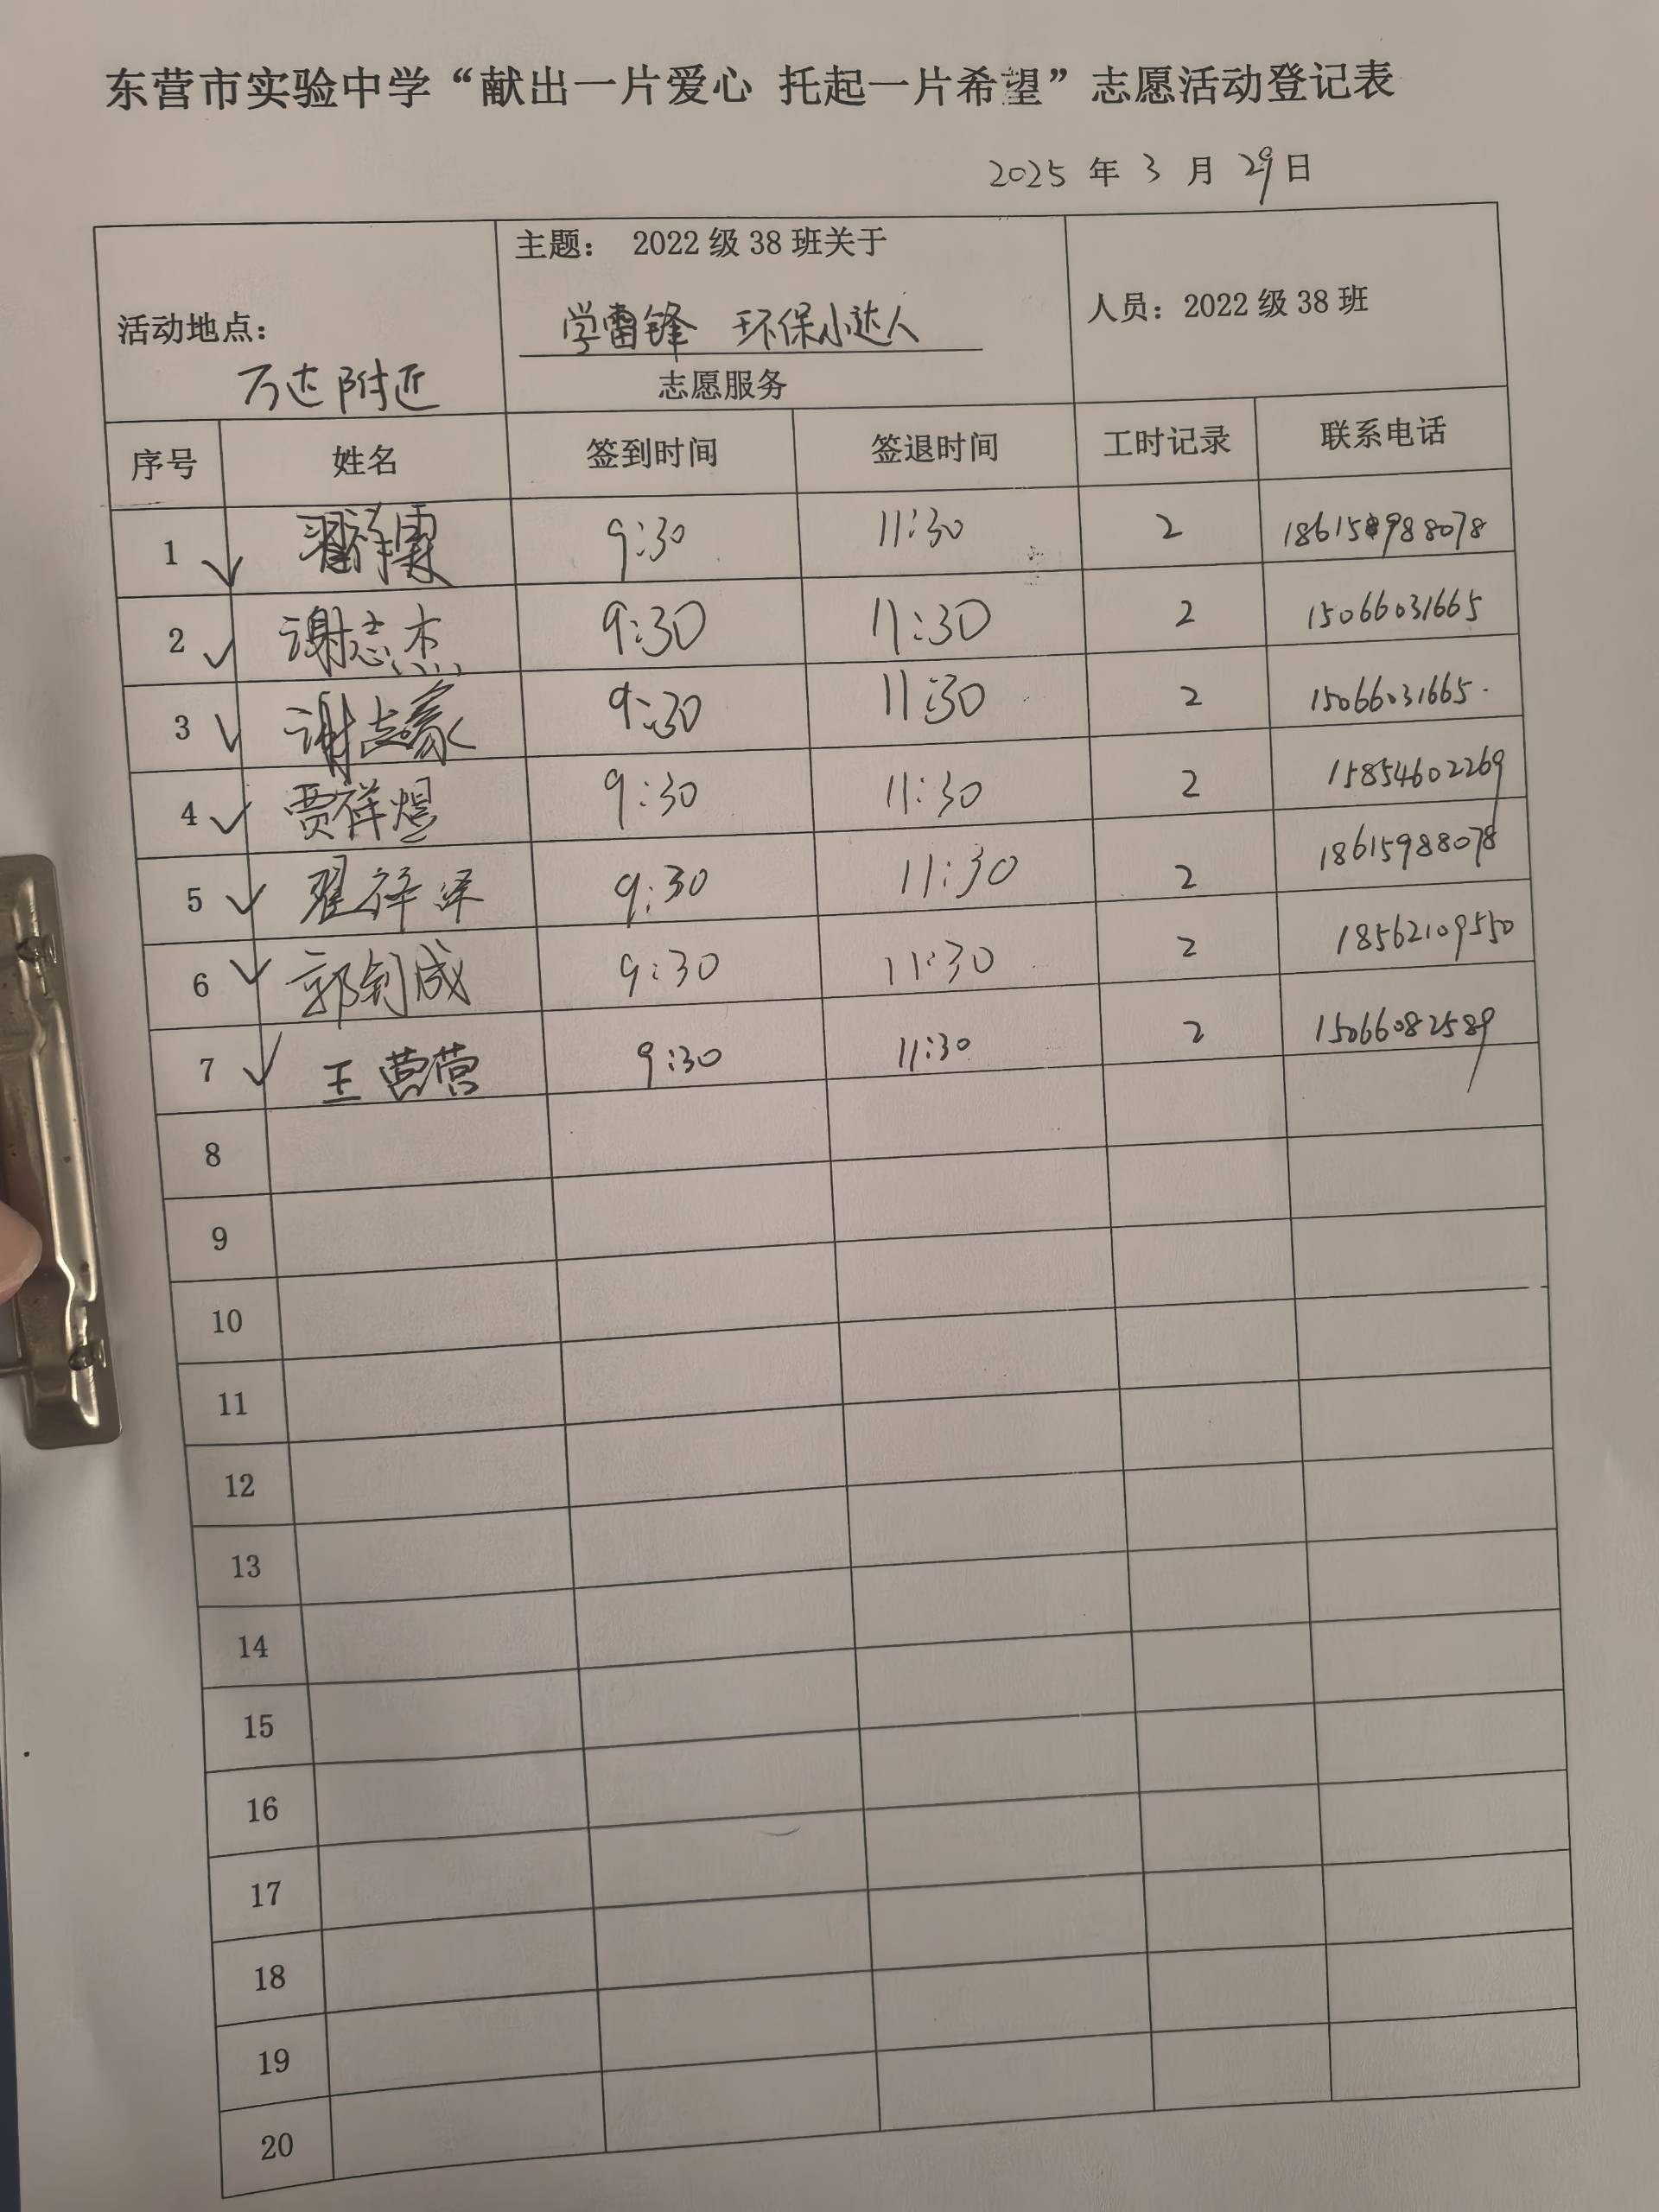 东营市实验中学“献出一片爱心 托起一片希望”志愿活动登记表
2025 年 3 月 29 日
活动地点：
万达附近
主题： 2022 级 38 班关于
学雷锋 环保小达人
志愿服务
人员：2022 级 38 班
序号 姓名 签到时间 签退时间 工时记录 联系电话
1 翟祥 9:30 11:30 2 18615988078
2 谢志杰 9:30 11:30 2 15066031665
3 谢志豪 9:30 11:30 2 15066031665.
4 贾祥煜 9:30 11:30 2 15854602269
5 翟祥泽 9:30 11:30 2 18615988078
6 郭钊成 9:30 11:30 2 18562109550
7 王营营 9:30 11:30 2 15066082589
8
9
10
11
12
13
14
15
16
17
18
19
20